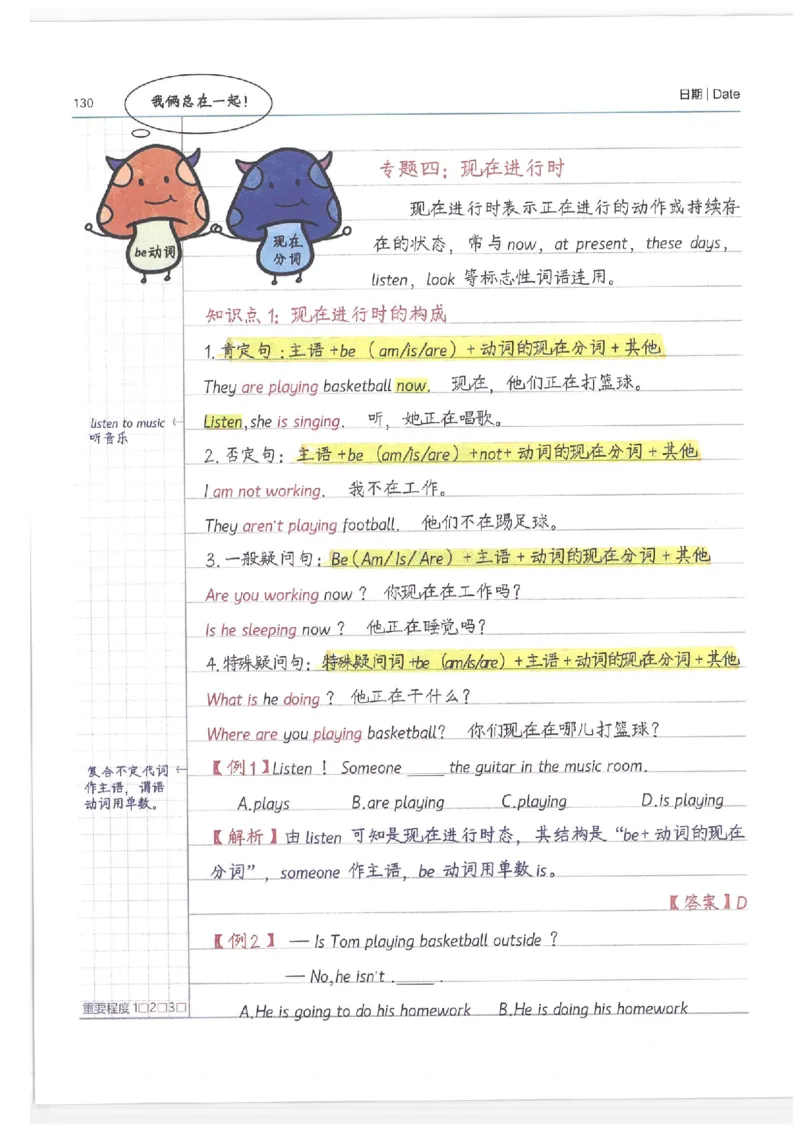 130
日期 | Date
我俩总在一起！
be动词
现在
分词
专题四：现在进行时
现在进行时表示正在进行的动作或持续存
在的状态，常与 now，at present，these days，
listen，look 等标志性词语连用。
知识点 1：现在进行时的构成
1. 肯定句：主语 +be （am/is/are）+ 动词的现在分词 + 其他
They are playing basketball now. 现在，他们正在打篮球。
listen to music ←
听音乐
Listen,she is singing. 听，她正在唱歌。
2. 否定句：主语 +be （am/is/are）+not+ 动词的现在分词 + 其他
I am not working. 我不在工作。
They aren't playing football. 他们不在踢足球。
3. 一般疑问句：Be（Am/ Is/ Are）+ 主语 + 动词的现在分词 + 其他
Are you working now ？ 你现在在工作吗？
Is he sleeping now ？ 他正在睡觉吗？
4. 特殊疑问句：特殊疑问词 +be （am/is/are）+ 主语 + 动词的现在分词 + 其他
What is he doing ？ 他正在干什么？
Where are you playing basketball？ 你们现在在哪儿打篮球？
复合不定代词 ←
作主语，谓语
动词用单数。
【例1】Listen ！ Someone ____ the guitar in the music room.
A.plays B.are playing C.playing D.is playing
【解析】由 listen 可知是现在进行时态，其结构是“be+ 动词的现在
分词”，someone 作主语，be 动词用单数 is。
【答案】D
【例2】 — Is Tom playing basketball outside ？
— No,he isn't .____ .
A.He is going to do his homework B.He is doing his homework
重要程度 1□2□3□